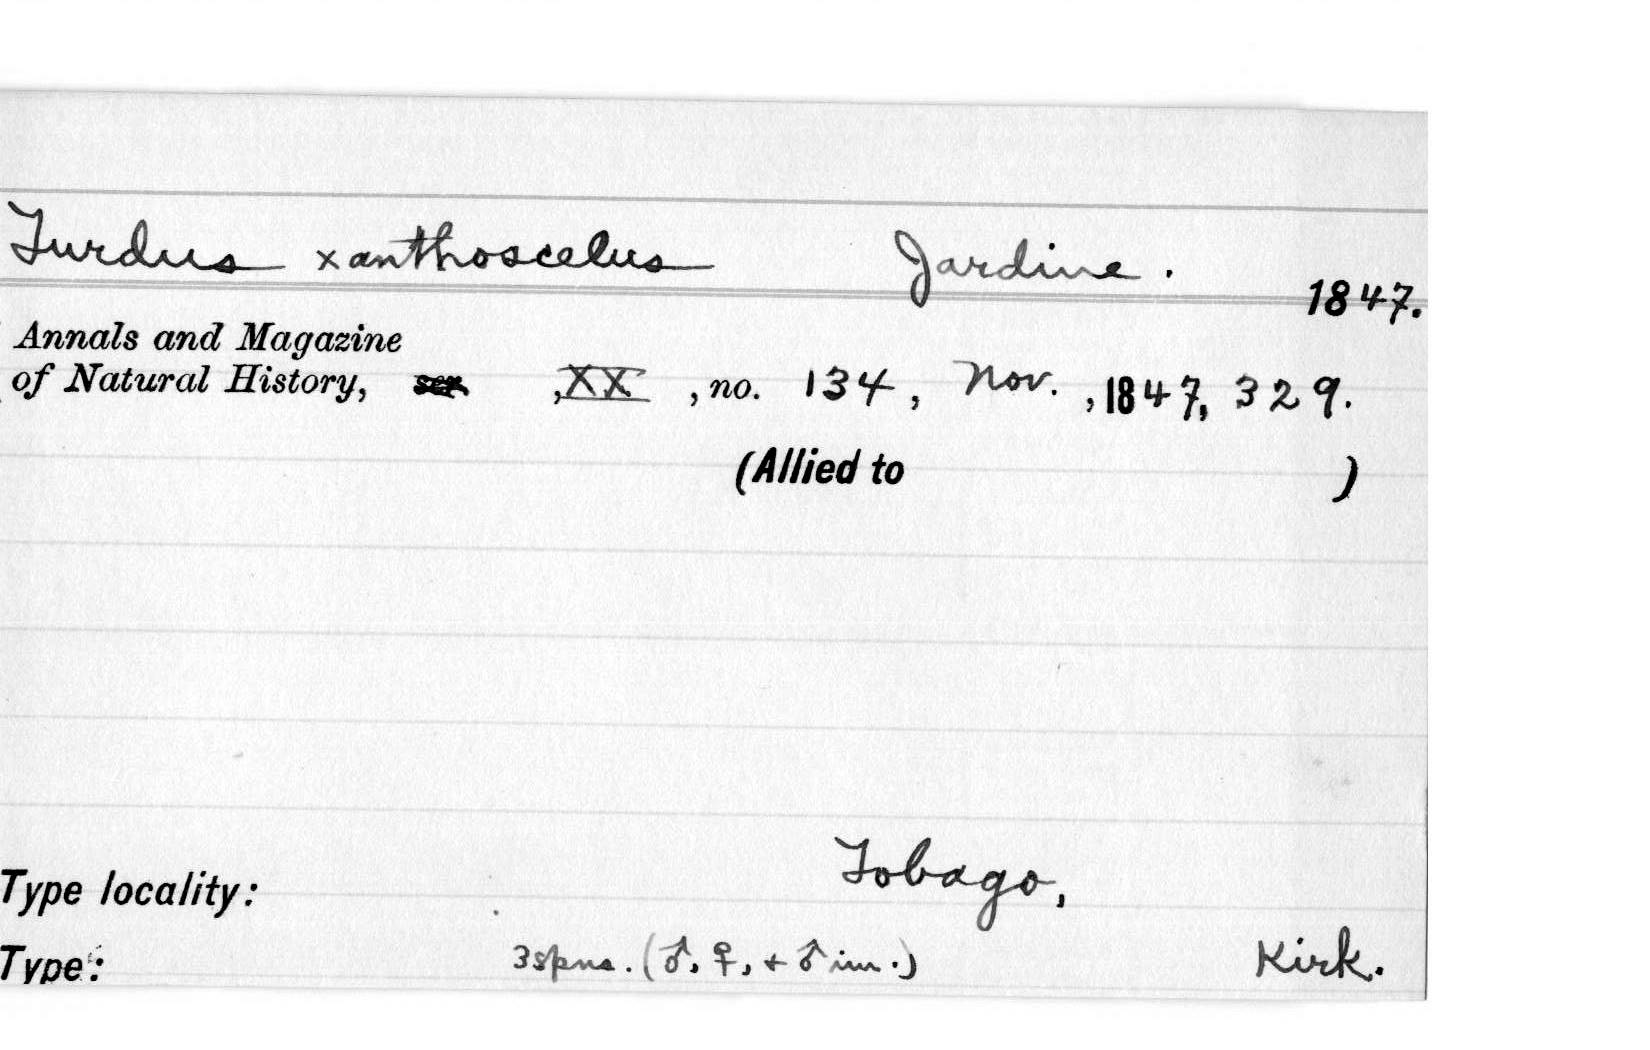 Turdus xanthoscelus Jardine. 1847.
Annals and Magazine
of Natural History, ser. , XX , no. 134, Nov. , 1847, 329.
(Allied to )
Type locality: Tobago,
Type: 3 spns. (♂, ♀, + ♂ im.) Kirk.